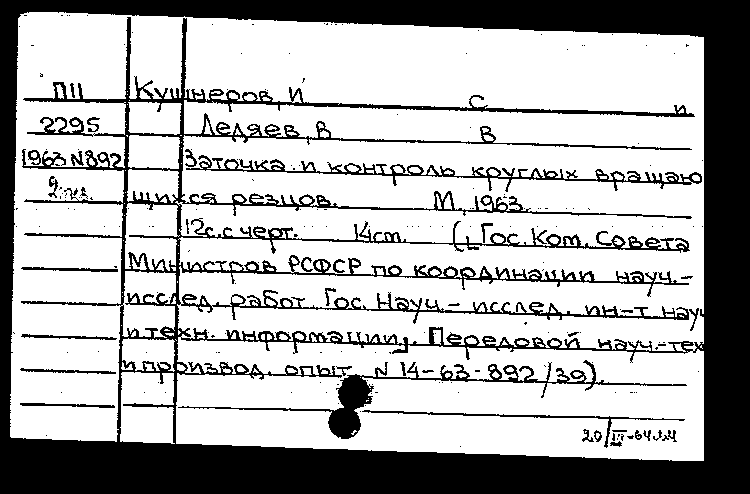 ПII Кушнеров, И С и
2295 Ледяев, В В
1963 N892 Заточка и контроль круглых вращаю
2 экз. щихся резцов. М, 1963.
12с. с черт. 14см. ([Гос. Ком. Совета
Министров РСФСР по координации науч.-
исслед. работ. Гос. Науч.- исслед. ин-т науч
и техн. информации]. Передовой науч.-тех
и производ. опыт. N 14-63-892/39).
20/IV-64